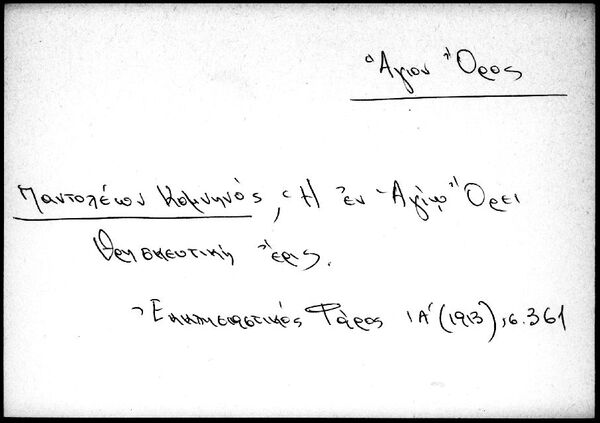 Ἅγιον Ὄρος
Παντολέων Κομνηνός, Ἡ ἐν Ἁγίῳ Ὄρει
θρησκευτική ἔρις.
Ἐκκλησιαστικός Φάρος ΙΑ' (1913), σ. 361